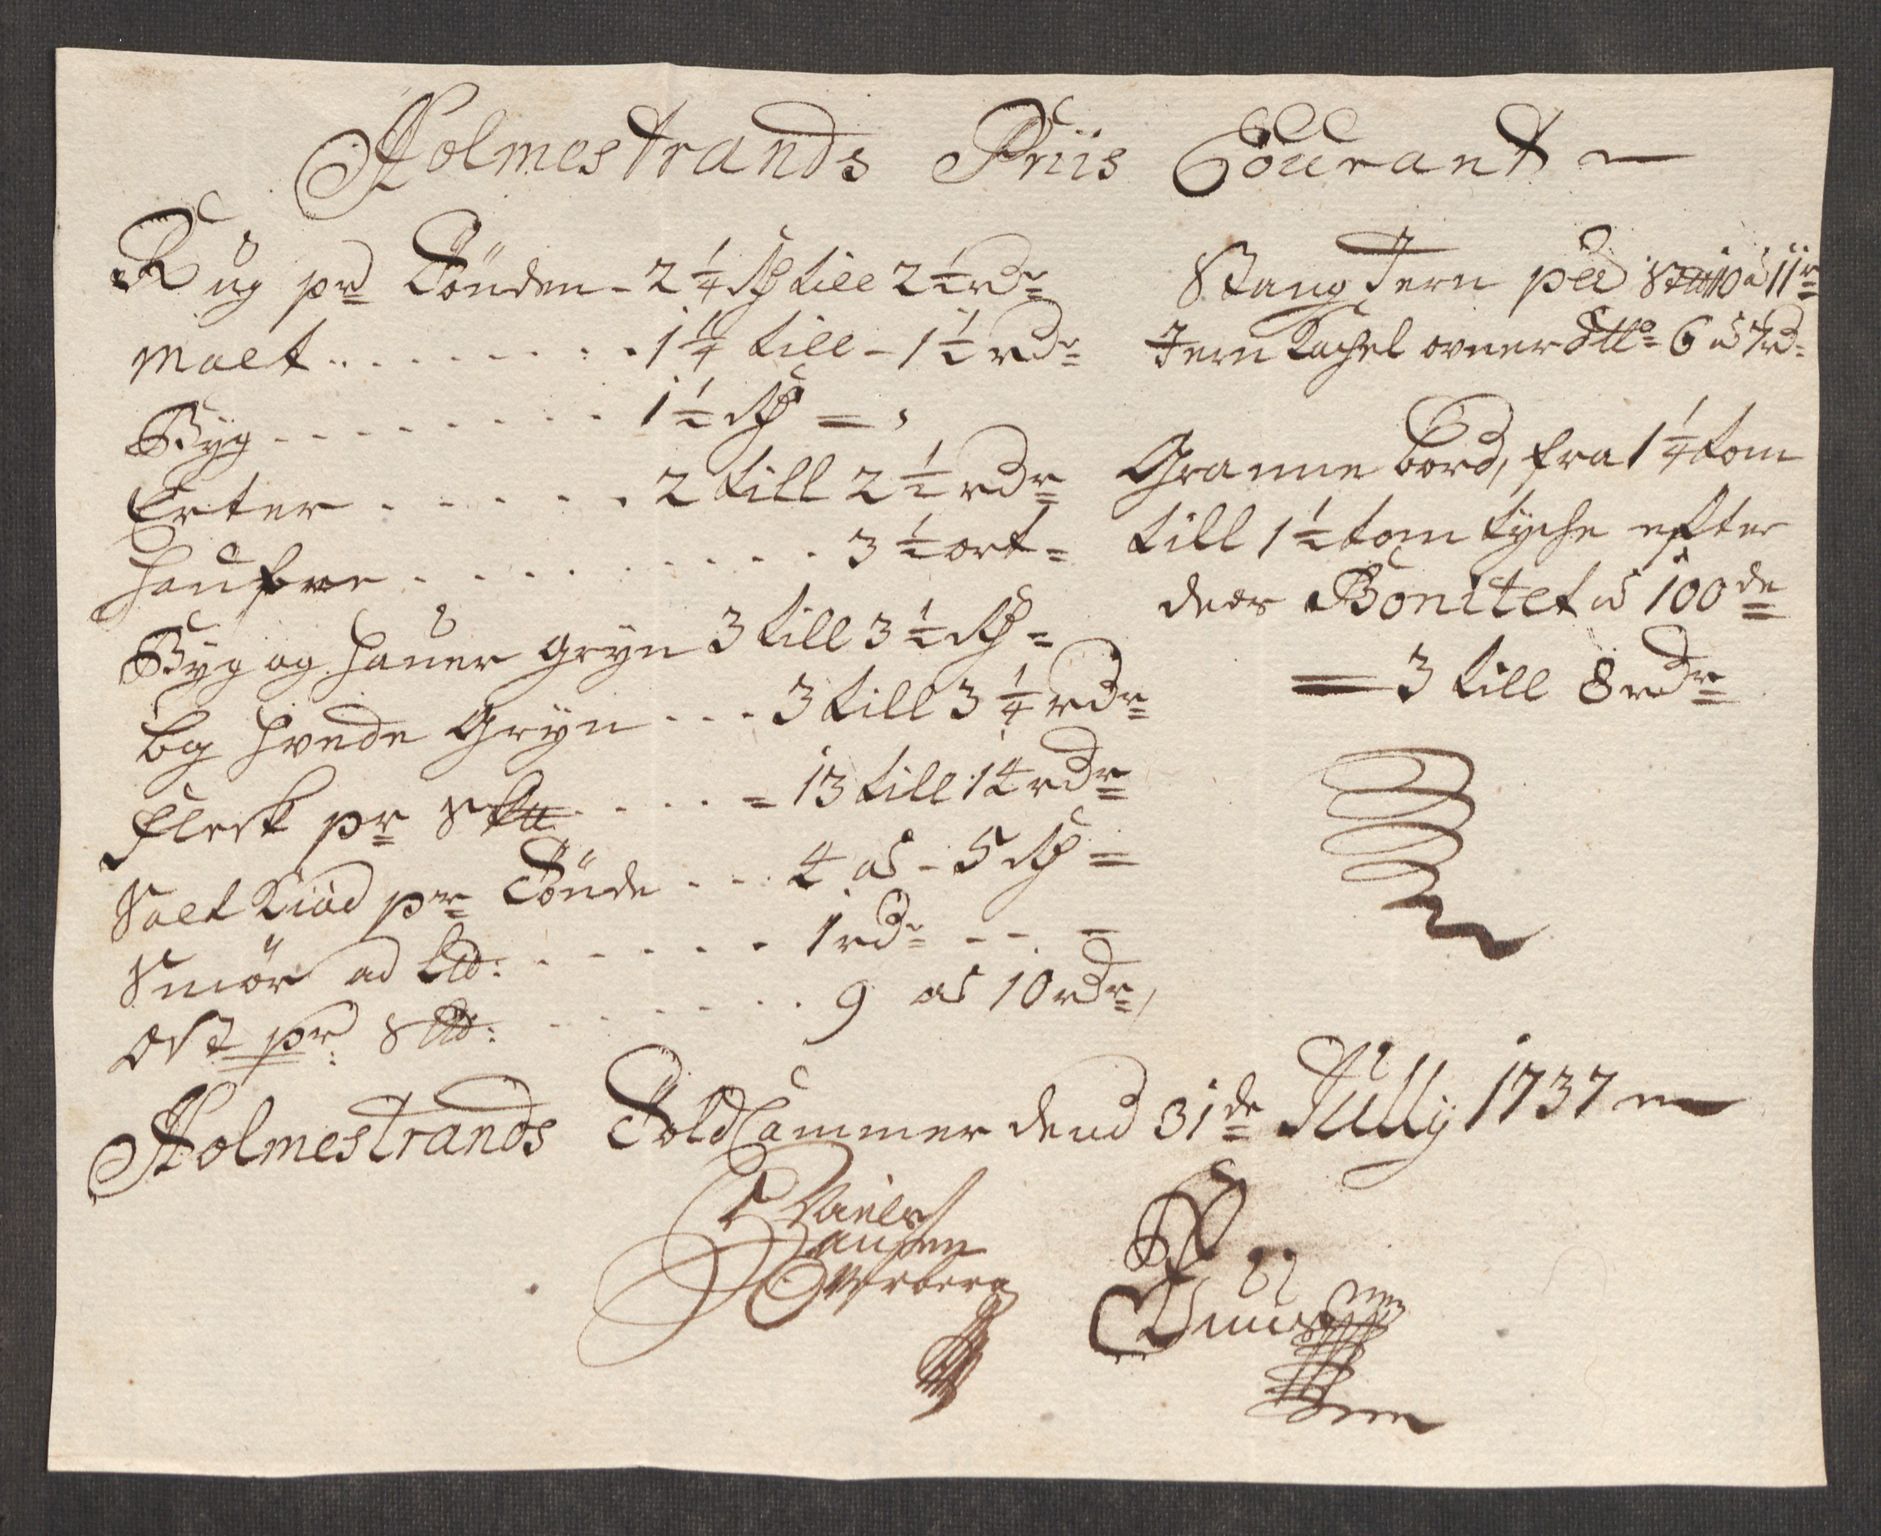 Holmestrands Priis Courant
Rug pr Tönden - 2 1/4 Rd till 2 1/2 rdr
malt - - - 1 1/4 till - 1 1/2 rdr
Byg - - - 1 1/2 Rd =
Erter - - - 2 till 2 1/2 rdr
haufre - - - 3 1/2 ort =
Byg og hauer gryn 3 till 3 1/2 Rd =
bog hvede Gryn - - - 3 till 3 1/4 rdr
Flesk pr Sk℔ - - - 13 till 14 rdr
Salt Kiöd pr Tönde - - - 4 a - 5 Rd =
Smör ad L℔: - - - 1 rdr - - -
Ost pr S℔: - - - 9 a 10 rdr,
Stang Jern per Sk℔ 10 a 11 r
Jern Kachel ovner dtto 6 a 7 rd
Granne bord, fra 1 1/4 tom
till 1 1/2 tom tyche efter
deres Bonitet a 100de
3 till 8 rdr
Holmestrands Told Cammer dend 31de Jully 1737
Niels
Hansen